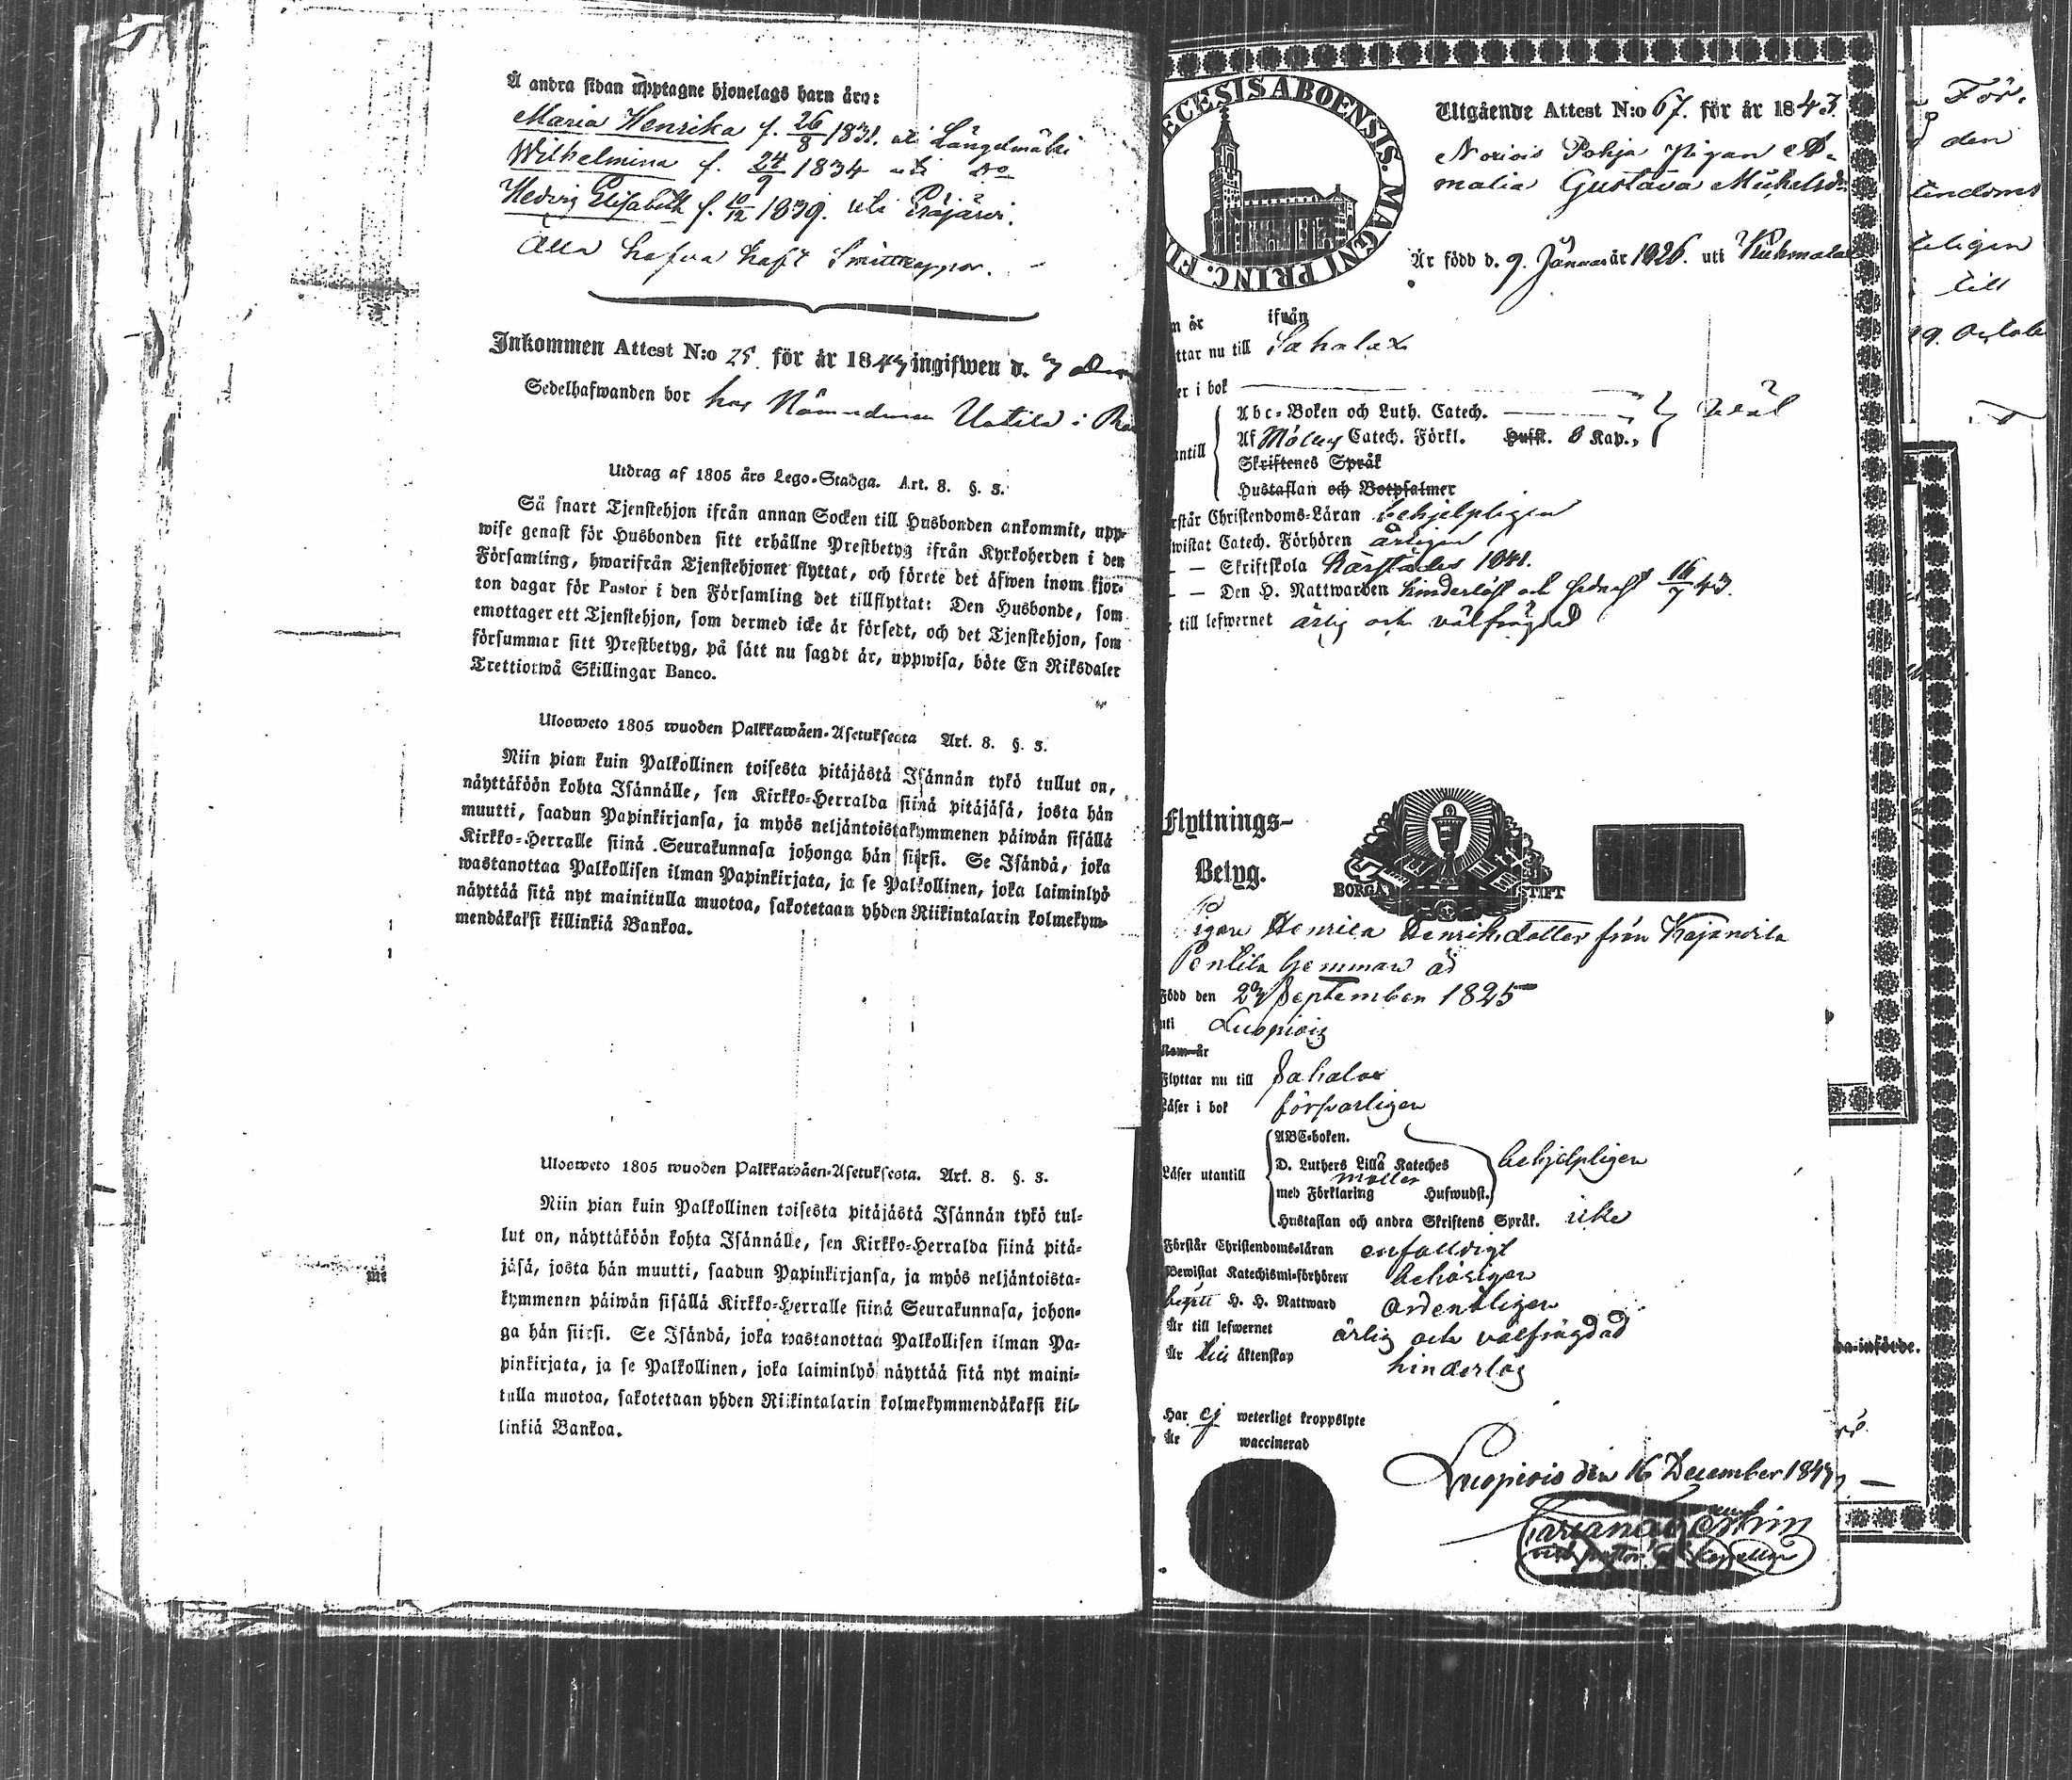 Å andra sidan upptagne hjonelags barn äro:
Maria Henrika f. 26/8 1831. uti Längelmäki
Wilhelmina f. 24/9 1834 uti Do
Hedvig Elisabeth f. 10/12 1839. uti
Alla hafva haft
Inkommen Attest N:o 25. för år 1843 ingifwen d. 3
Sedelhafwanden bor hos Nämndeman Uotila i
Utdrag af 1805 års Lego-Stadga. Art. 8. §. 3.
Så snart Tjenstehjon ifrån annan Socken till Husbonden ankommit, upp-
wise genast för Husbonden sitt erhållne Prestbetyg ifrån Kyrkoherden i den
Församling, hwarifrån Tjenstehjonet flyttat, och förete det äfwen inom fjor-
ton dagar för Pastor i den Församling det tillflyttat: Den Husbonde, som
emottager ett Tjenstehjon, som dermed icke är försedt, och det Tjenstehjon, som
försummar sitt Prestbetyg, på sätt nu sagdt är, uppwisa, böte En Riksdaler
Trettiotwå Skillingar Banco.
Ulosweto 1805 wuoden Palkkawäen-Asetuksesta Art. 8. §. 3.
Niin pian kuin Palkollinen toisesta pitäjästä Isännän tykö tullut on,
näyttäköön kohta Isännälle, sen Kirkko-Herralda siinä pitäjäsä, josta hän
muutti, saadun Papinkirjansa, ja myös neljäntoistakymmenen päiwän sisällä
Kirkko-Herralle siinä Seurakunnasa johonga hän siirsi. Se Isändä, joka
wastanottaa Palkollisen ilman Papinkirjata, ja se Palkollinen, joka laiminlyö
näyttää sitä nyt mainitulla muotoa, sakotetaan yhden Riikintalarin kolmekym-
mendäkaksi killinkiä Bankoa.
Ulosweto 1805 wuoden Palkkawäen-Asetuksesta. Art. 8. §. 3.
Niin pian kuin Palkollinen toisesta pitäjästä Isännän tykö tul-
lut on, näyttäköön kohta Isännälle, sen Kirkko-Herralda siinä pitä-
jäsä, josta hän muutti, saadun Papinkirjansa, ja myös neljäntoista-
kymmenen päiwän sisällä Kirkko-Herralle siinä Seurakunnasa, johon-
ga hän siirsi. Se Isändä, joka wastanottaa Palkollisen ilman Pa-
pinkirjata, ja se Palkollinen, joka laiminlyö näyttää sitä nyt maini-
tulla muotoa, sakotetaan yhden Riikintalarin kolmekymmendäkaksi kil-
linkiä Bankoa.
ECESIS ABOENSIS. MAGNI PRINC. FI
Utgående Attest N:o 67. för år 1843.
Norivis Pohja Pigan A-
malia Gustava Michelsdr
Är född d. 9. Januar år 1826. uti Kuhmalax
ifrån
ttar nu till Sahalax
er i bok
Abc-Boken och Luth. Catech.
Af Möllers Catech. Förkl. Hufst. 8 Kap.,
väl
antill
Skriftenes Språk
Hustaflan och Botpsalmer
rstår Christendoms-Läran behjelpligen
wistat Catech. Förhören årligen
— — Skriftskola härstädes 1841.
— — Den H. Nattwarden hinderlöst och sednast 16/7 43.
till lefwernet ärlig och välfrägdad
Flyttnings-
Betyg.
BORGÅ STIFT
Pigan Henrica Henriksdotter från Kajanvila
Pentila hemman är
Född den 23 September 1825
uti Luopiois
Kom år
Flyttar nu till Sahalax
Läser i bok försvarligen
ABC-boken.
Läser utantill
D. Luthers Lilla Kateches
Möller
behjelpligen
med Förklaring Hufwudst.
Hustaflan och andra Skriftens Språk. icke
Förstår Christendoms-läran enfaldigt
Bewistat Katechismi-förhören behörigen
begått H. H. Nattward ordentligen
Är till lefwernet ärlig och välfrägdad
Är till äktenskap hinderlös
Har ej weterligt kroppslyte
Är waccinerad
Luopiois den 16 December 1843
För.
den
ligen
till
19. Octobe